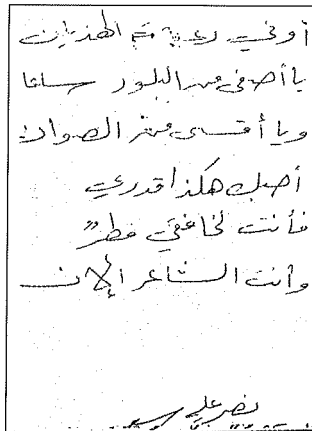 أوفي رعبة تم الهذيان
يا أصفى من البلور ساعا
ويا أقسى من الصوان
أحبك هكذا قدري
فأنت لخافقي مطر
وأنت الشاعر الإنسان
نصر علي سعيد